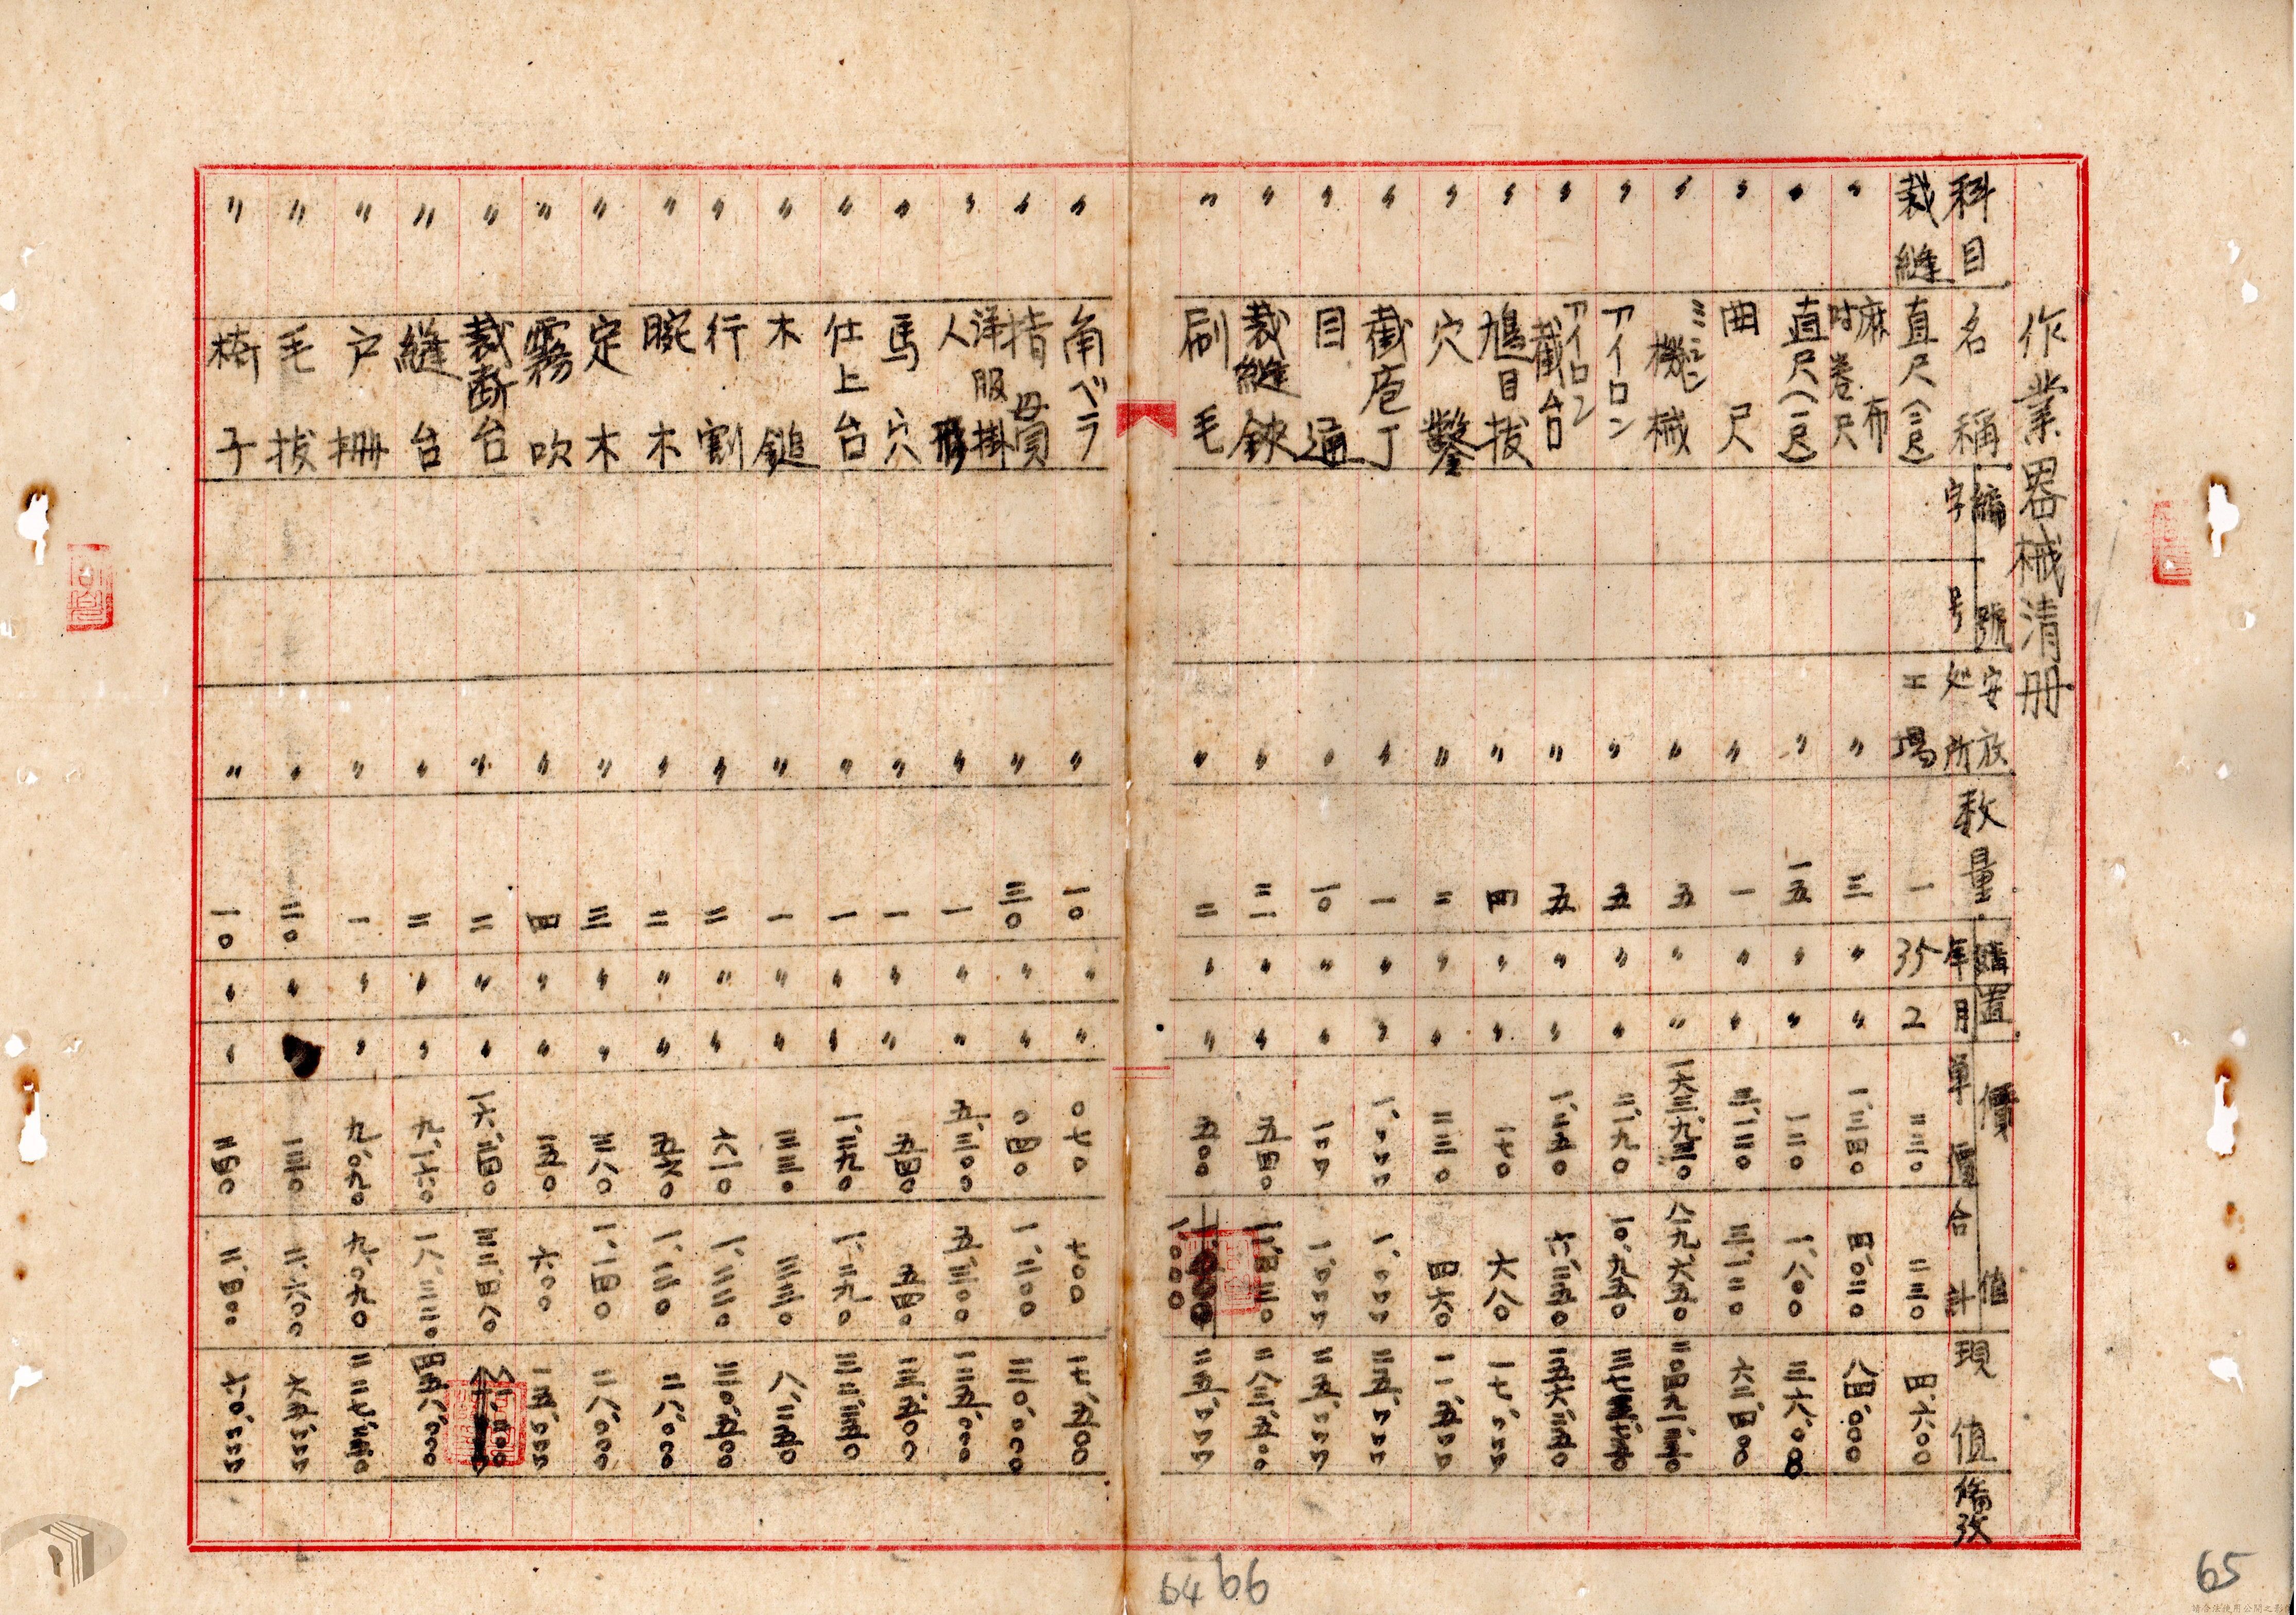 作業器械清册
科目 名稱 編號 字 号 安放処所 数量 購置 年 月 價值 單價 合計 現值 備攷
裁縫 直尺(二尺) 工場 一 35 2 二三〇 二三〇 四六〇〇
〃 麻布吋卷尺 〃 三 〃 〃 一、三四〇 四、〇二〇 八四、〇〇〇
〃 直尺(一尺) 〃 一五 〃 〃 一二〇 一、八〇〇 三六、〇〇
〃 曲尺 〃 一 〃 〃 三、一二〇 三、一二〇 六三、四〇〇
〃 ミシン機械 〃 五 〃 〃
〃 アイロン 〃 五 〃 〃 二、一九〇 一〇、九五〇
〃 アイロン截台 〃 五 〃 〃 一、二五〇 六、二五〇 一五六、二五〇
〃 鳩目拔 〃 四 〃 〃 一七〇 六八〇 一七、〇〇〇
〃 穴鑿 〃 二 〃 〃 二三〇 四六〇 一一、五〇〇
〃 截庖丁 〃 一 〃 〃 一、〇〇〇 一、〇〇〇 二五、〇〇〇
〃 目通 〃 一〇 〃 〃 一〇〇 一、〇〇〇 二五、〇〇〇
〃 裁縫鋏 〃 二一 〃 〃 五四〇 二八三、五〇〇
〃 刷毛 〃 二 〃 〃 五〇〇 一、〇〇〇 二五、〇〇〇
〃 角ベラ 〃 一〇 〃 〃 〇七〇 七〇〇 一七、五〇〇
〃 指貫 〃 三〇 〃 〃 〇四〇 一、二〇〇 三〇、〇〇〇
〃 洋服掛人形 〃 一 〃 〃 五、〇〇〇 五、〇〇〇 一二五、〇〇〇
〃 馬穴 〃 一 〃 〃 五四〇 五四〇 一三、五〇〇
〃 仕上台 〃 一 〃 〃 一、二九〇 一、二九〇 三二、二五〇
〃 木鎚 〃 一 〃 〃 三三〇 三三〇 八、二五〇
〃 行割 〃 二 〃 〃 六一〇 一、二二〇 三〇、五〇〇
〃 腕木 〃 二 〃 〃 五六〇 一、一二〇 二八、〇〇〇
〃 定木 〃 三 〃 〃 三八〇 一、一四〇 二八、〇〇〇
〃 霧吹 〃 四 〃 〃 一五〇 六〇〇 一五、〇〇〇
〃 裁断台 〃 二 〃 〃 一六、二四〇 三二、四八〇
〃 縫台 〃 二 〃 〃 九、一六〇 一八、三二〇 四五八、〇〇〇
〃 戸棚 〃 一 〃 〃 九、〇九〇 九、〇九〇 二二七、二五〇
〃 毛拔 〃 二〇 〃 一三〇 二、六〇〇 六五、〇〇〇
〃 椅子 〃 一〇 〃 〃 二四〇 二、四〇〇 六〇、〇〇〇
64 66
65